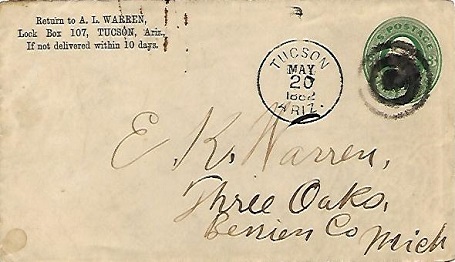 Return to A. L. WARREN,
Lock Box 107, TUCSON, Ariz.,
If not delivered within 10 days.
TUCSON
MAY
20
1882
ARIZ.
U.S. POSTAGE
E. K. Warren,
Three Oaks,
Berrien Co
Mich